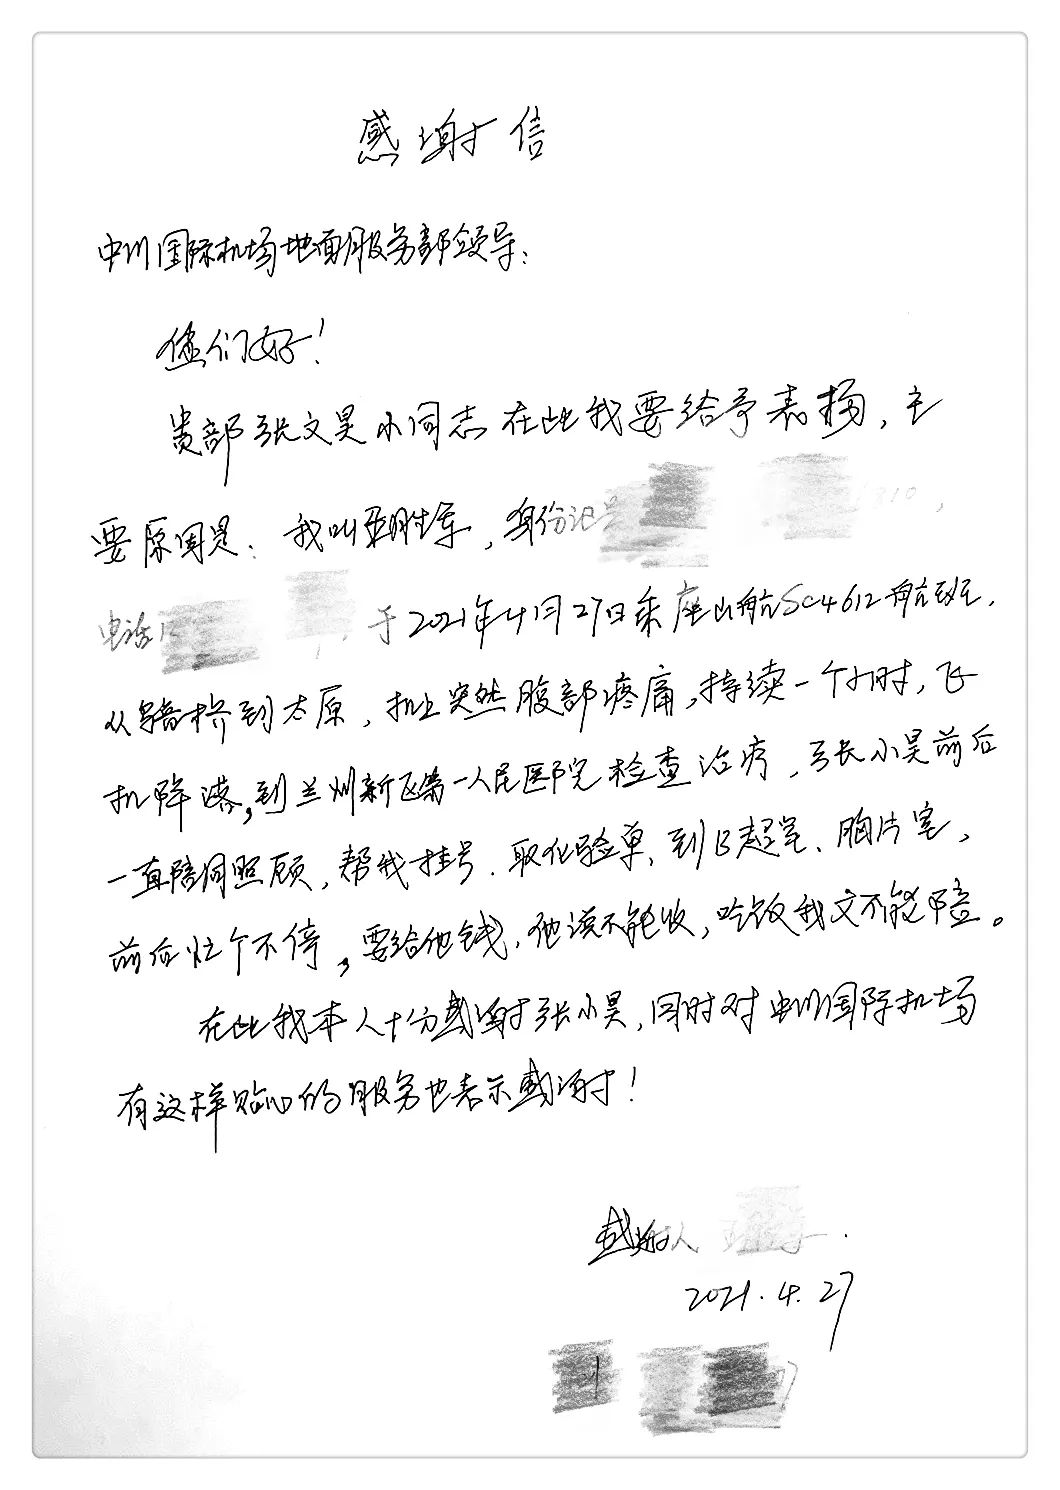 感谢信
中川国际机场地面服务部领导：
您们好！
贵部张文昊小同志在此我要给予表扬，主
要原因是：我叫胜军，身份证号 310，
电话1 ，于2021年4月27日乘座山航SC4612航班，
从 到太原，机上突然腹部疼痛，持续一个小时，飞
机降落，到兰州新区第一人民医院检查治疗，张小昊前后
一直陪同照顾，帮我挂号、取化验单、到B超室、胸片室，
前后忙个不停，要给他钱，他说不能收，吃饭我又不能
在此我本人十分感谢张小昊，同时对中川国际机场
有这样贴心的服务也表示感谢！
感谢人
2021.4.27